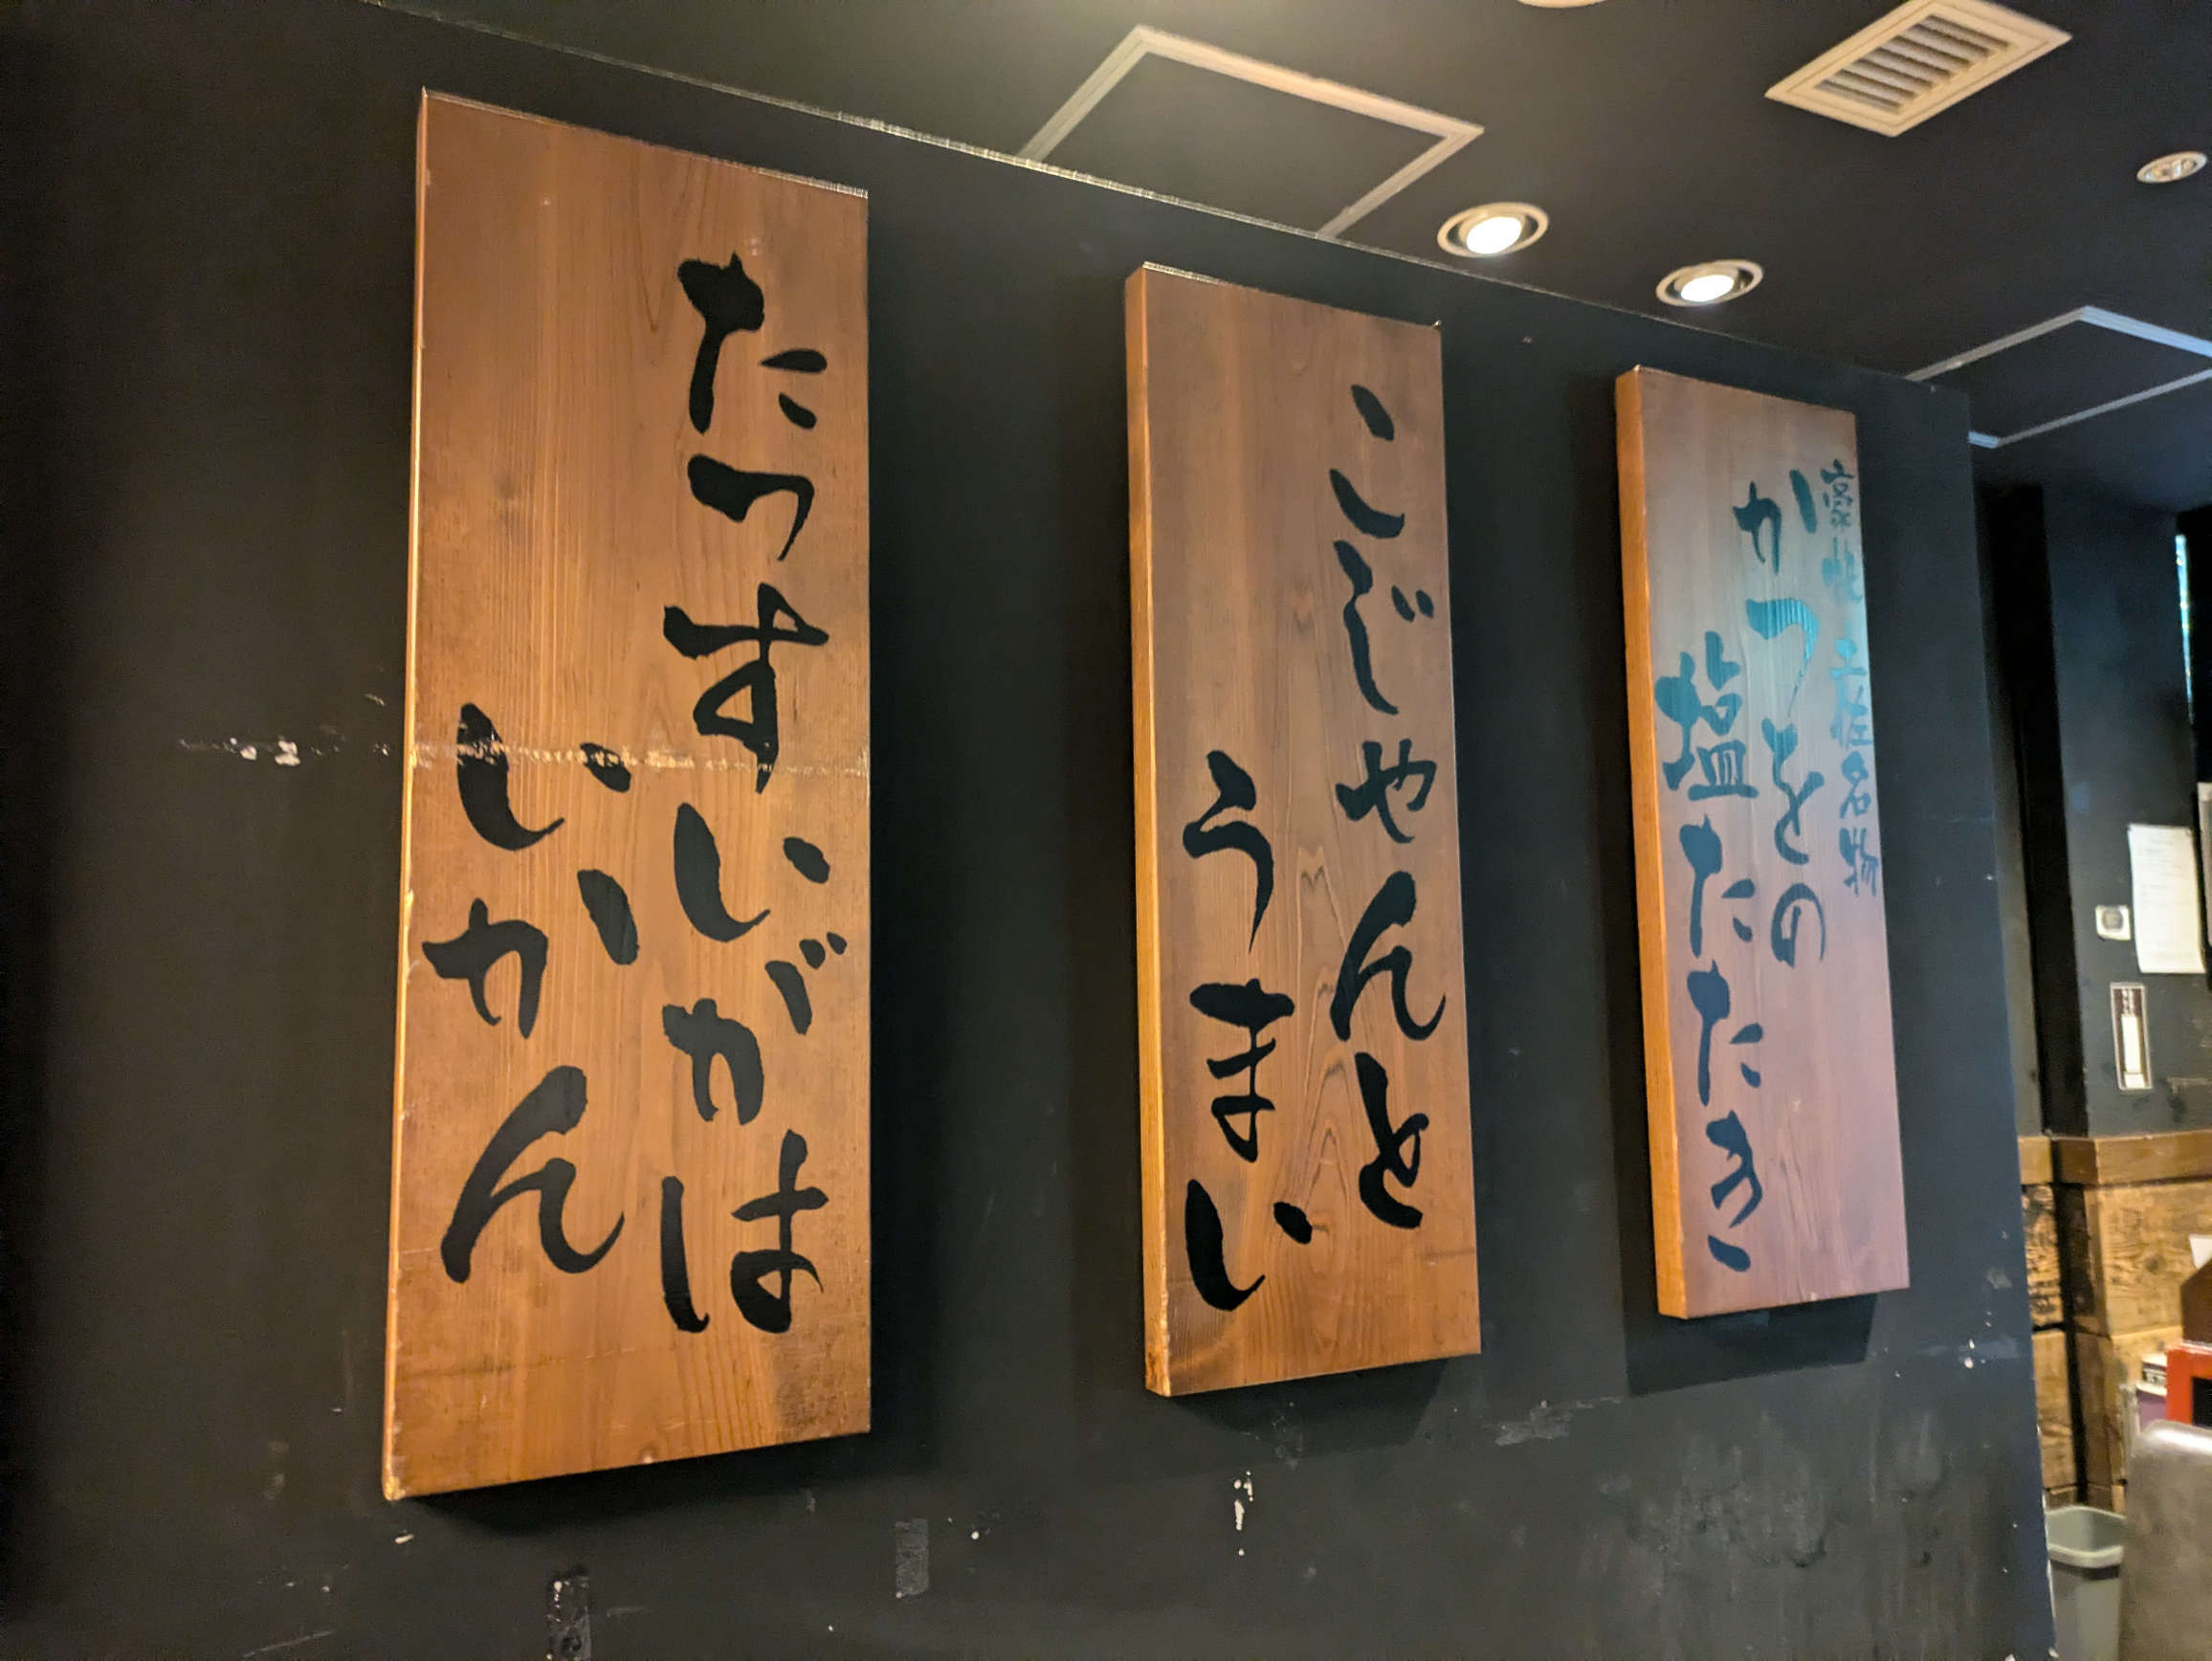 豪快 土佐名物
かつをの
塩たたき
こじゃんと
うまい
たっすいがは
いかん